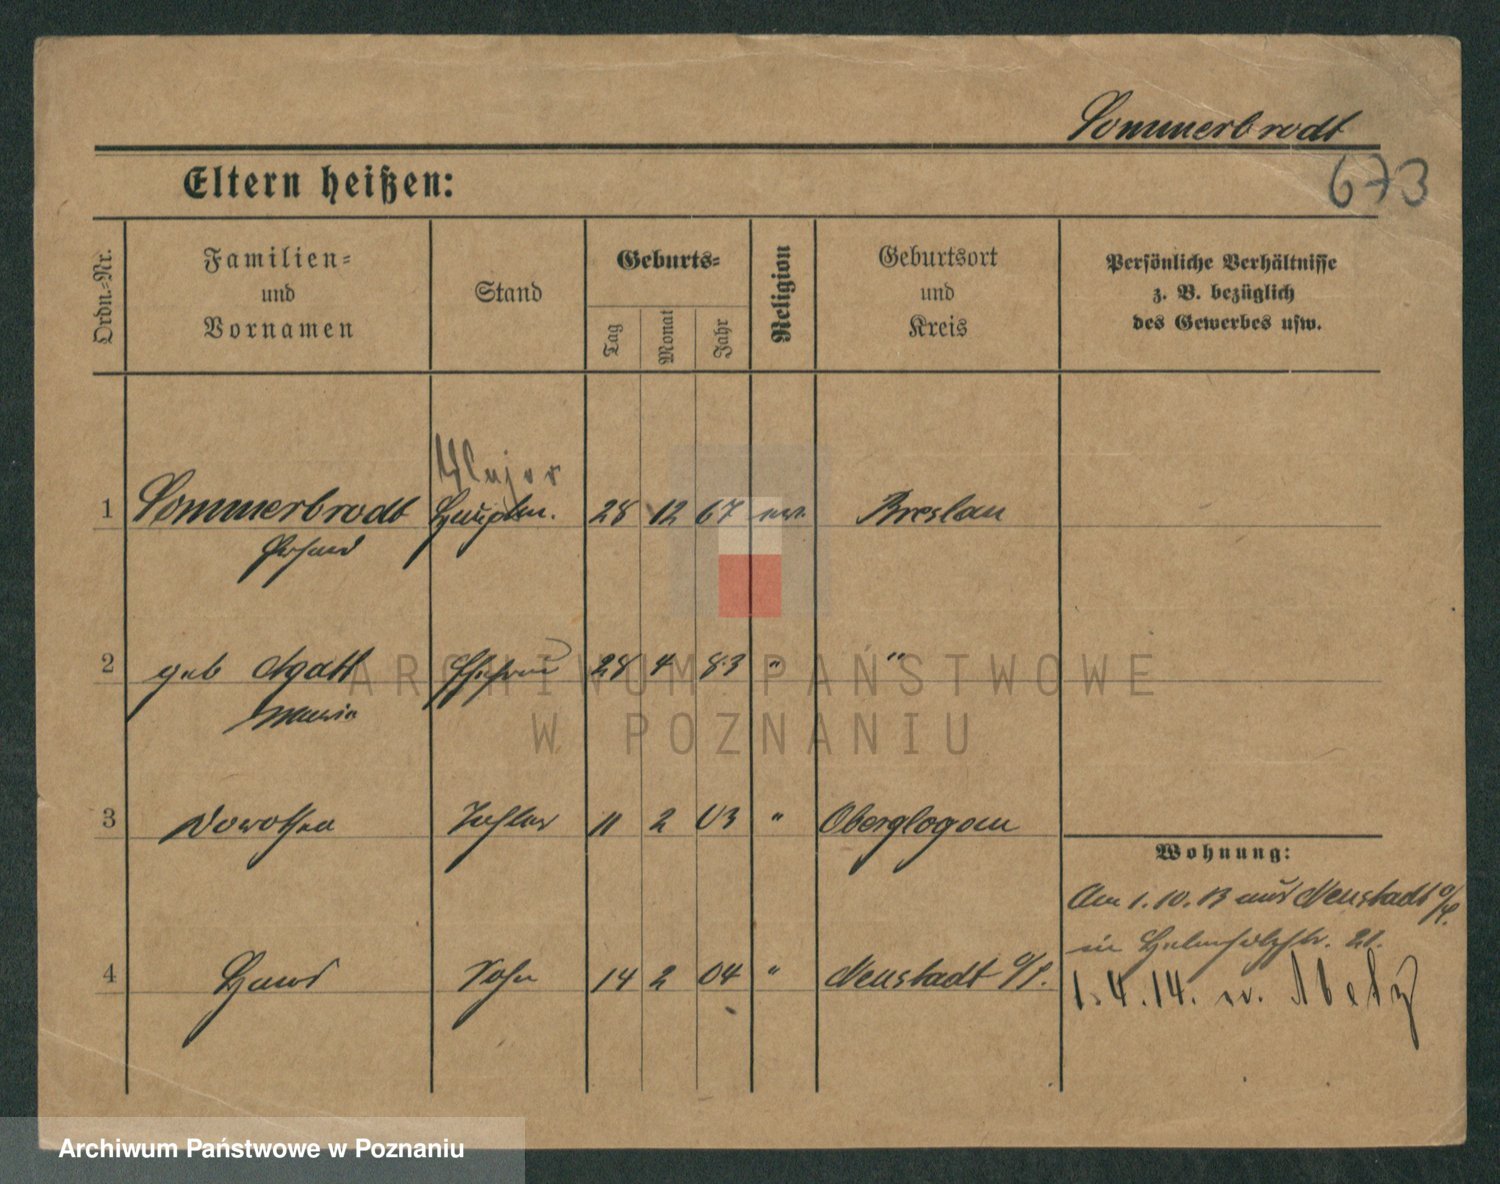 Sommerbrodt
673
Eltern heißen:
Ordn.-Nr.
Familien-
und
Vornamen
Stand
Geburts-
Tag
Monat
Jahr
Religion
Geburtsort
und
Kreis
Persönliche Verhältnisse
z. B. bezüglich
des Gewerbes usw.
Major
1 Sommerbrodt Hauptm. 28 12 67 ev. Breslau
Erhard
2 geb Agath Ehefrau 28 4 83 " "
Maria
3 Dorothea Tochter 11 2 03 " Oberglogau
Wohnung:
Am 1.10.13 aus Neustadt O/S.
in Helmholzstr. 21.
4 Hans Sohn 14 2 04 " Neustadt O/S.
1.4.14. n. Metz
ARCHIWUM PAŃSTWOWE
W POZNANIU
Archiwum Państwowe w Poznaniu